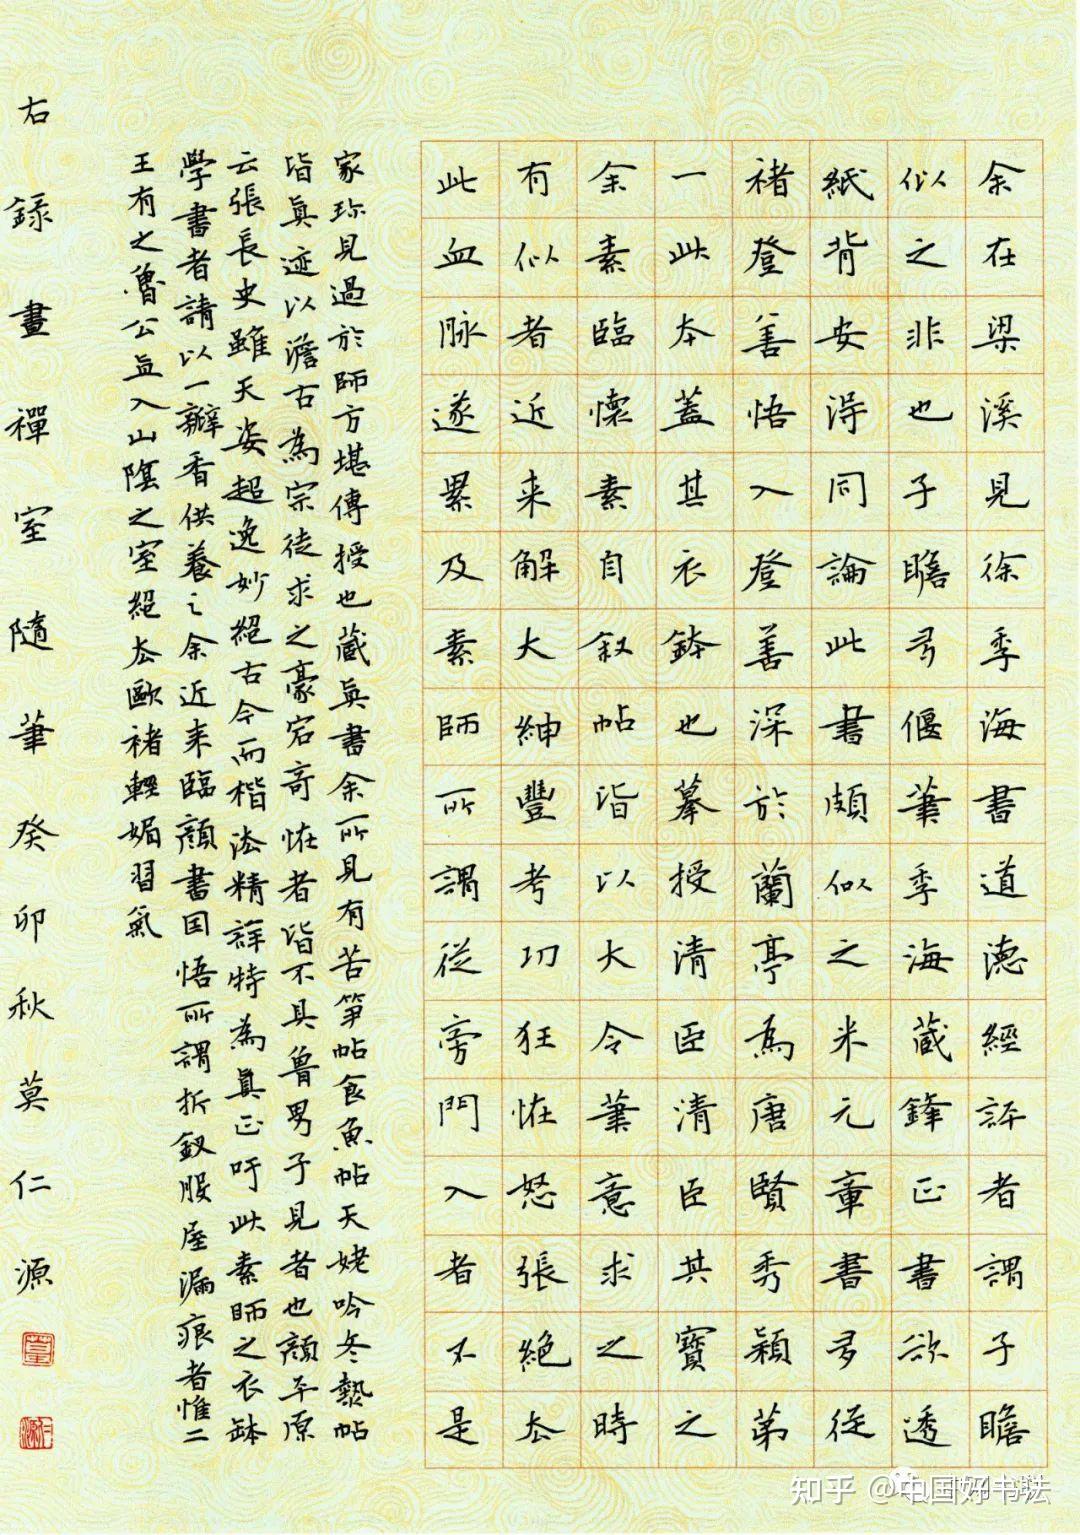 余在梁溪見徐季海書道德經評者謂子瞻
似之非也子瞻多偃筆季海藏鋒正書欲透
紙背安得同論此書頗似之米元章書多從
褚登善悟入登善深於蘭亭為唐賢秀穎第
一此本蓋其衣鉢也摹授清臣清臣其寶之
余素臨懷素自叙帖皆以大令筆意求之時
有似者近来解大紳豐考功狂怪怒張絕去
此血脉遂累及素師所謂從旁門入者不是
家珎見過於師方堪傳授也藏真書余所見有苦筍帖食魚帖天姥吟冬熱帖
皆真迹以澹古為宗徒求之豪宕奇怪者皆不具魯男子見者也顏平原
云張長史雖天姿超逸妙絕古今而楷法精詳特為真正吁此素師之衣鉢
學書者請以一瓣香供養之余近来臨顏書因悟所謂折釵股屋漏痕者惟二
王有之魯公直入山陰之室絕去歐褚輕媚習氣
右錄畫禪室隨筆癸卯秋莫仁源
知乎 @中国好书法